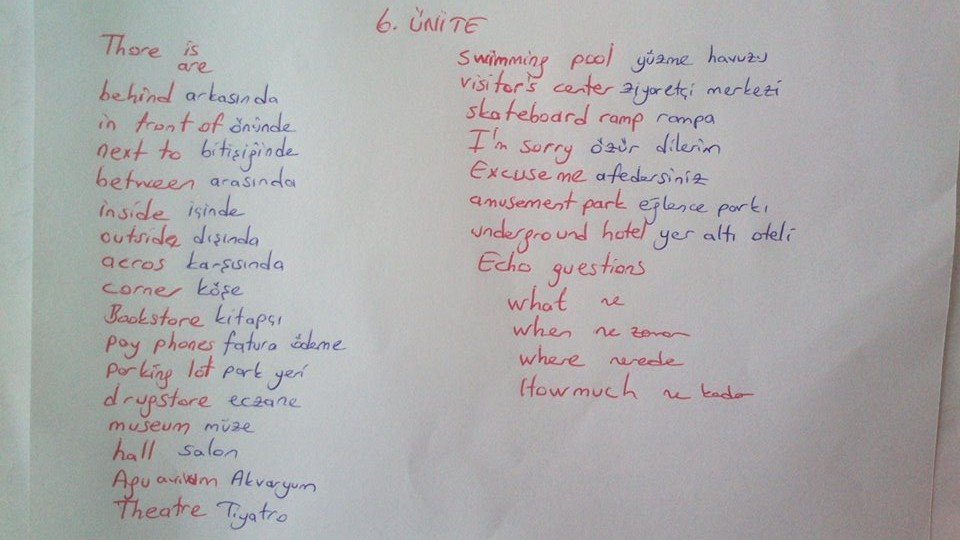 6. ÜNİTE
There is
are
behind arkasında
in front of önünde
next to bitişiğinde
between arasında
inside içinde
outside dışında
acros karşısında
corner köşe
Bookstore kitapçı
pay phones fatura ödeme
parking lot park yeri
drugstore eczane
museum müze
hall salon
Akvaryum
Theatre Tiyatro
swimming pool yüzme havuzu
visitor's center ziyaretçi merkezi
skateboard ramp rampa
I'm sorry özür dilerim
Excuse me afedersiniz
amusement park eğlence parkı
underground hotel yer altı oteli
Echo questions
what ne
when ne zaman
where nerede
How much ne kadar